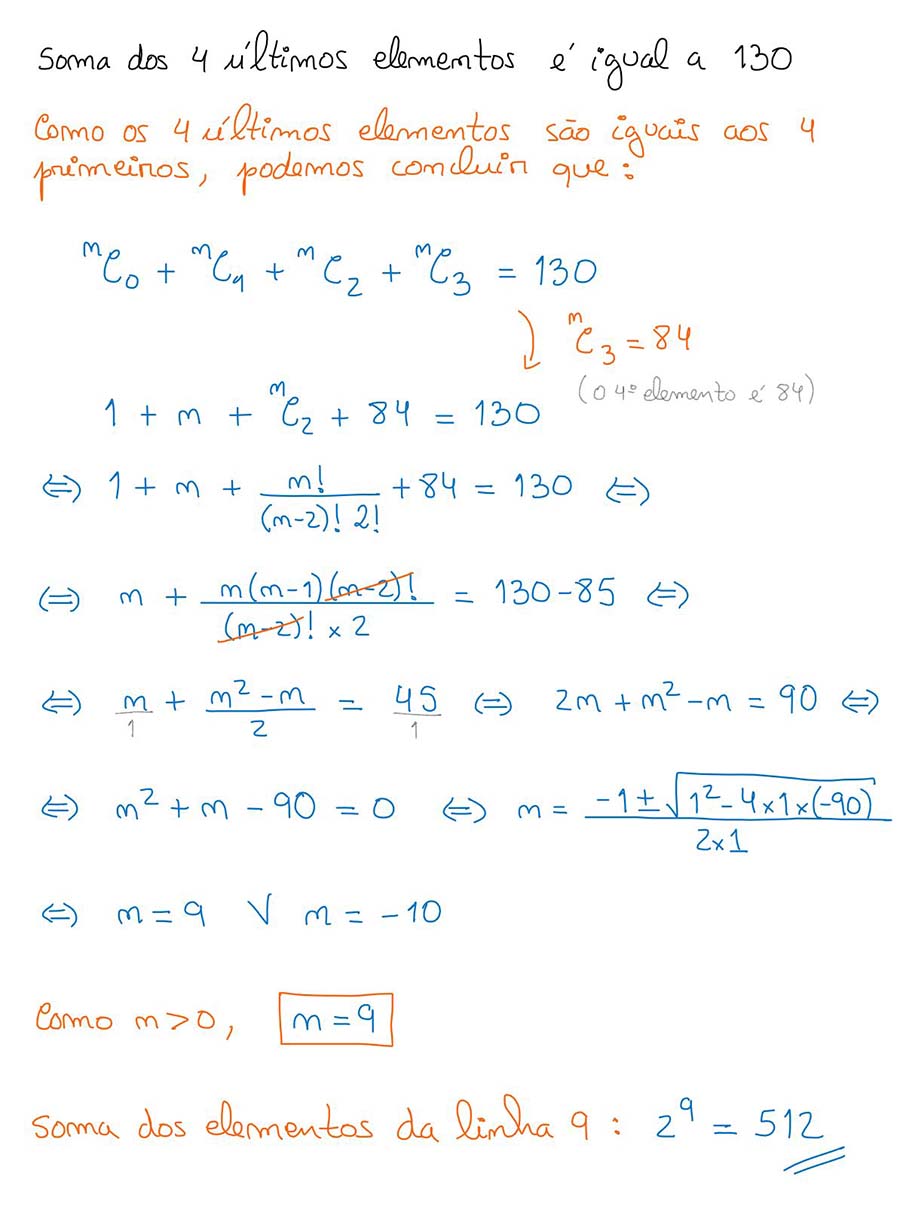 Soma dos 4 últimos elementos é igual a 130
Como os 4 últimos elementos são iguais aos 4
primeiros, podemos concluir que:
ⁿC₀ + ⁿC₁ + ⁿC₂ + ⁿC₃ = 130
ⁿC₃ = 84
(o 4º elemento é 84)
1 + n + ⁿC₂ + 84 = 130
⇔ 1 + n + n!/((n-2)! 2!) + 84 = 130 ⇔
⇔ n + n(n-1)(n-2)!/((n-2)! × 2) = 130-85 ⇔
⇔ n/1 + (n²-n)/2 = 45/1 ⇔ 2n + n² - n = 90 ⇔
⇔ n² + n - 90 = 0 ⇔ n = (-1 ± √(1² - 4×1×(-90)))/(2×1)
⇔ n = 9 ∨ n = -10
Como n > 0, n = 9
Soma dos elementos da linha 9 : 2⁹ = 512